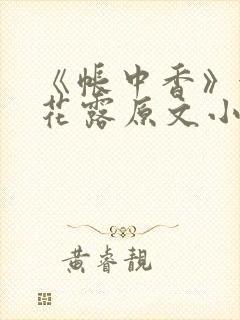 《帐中香》
花露原文小
黄睿靓